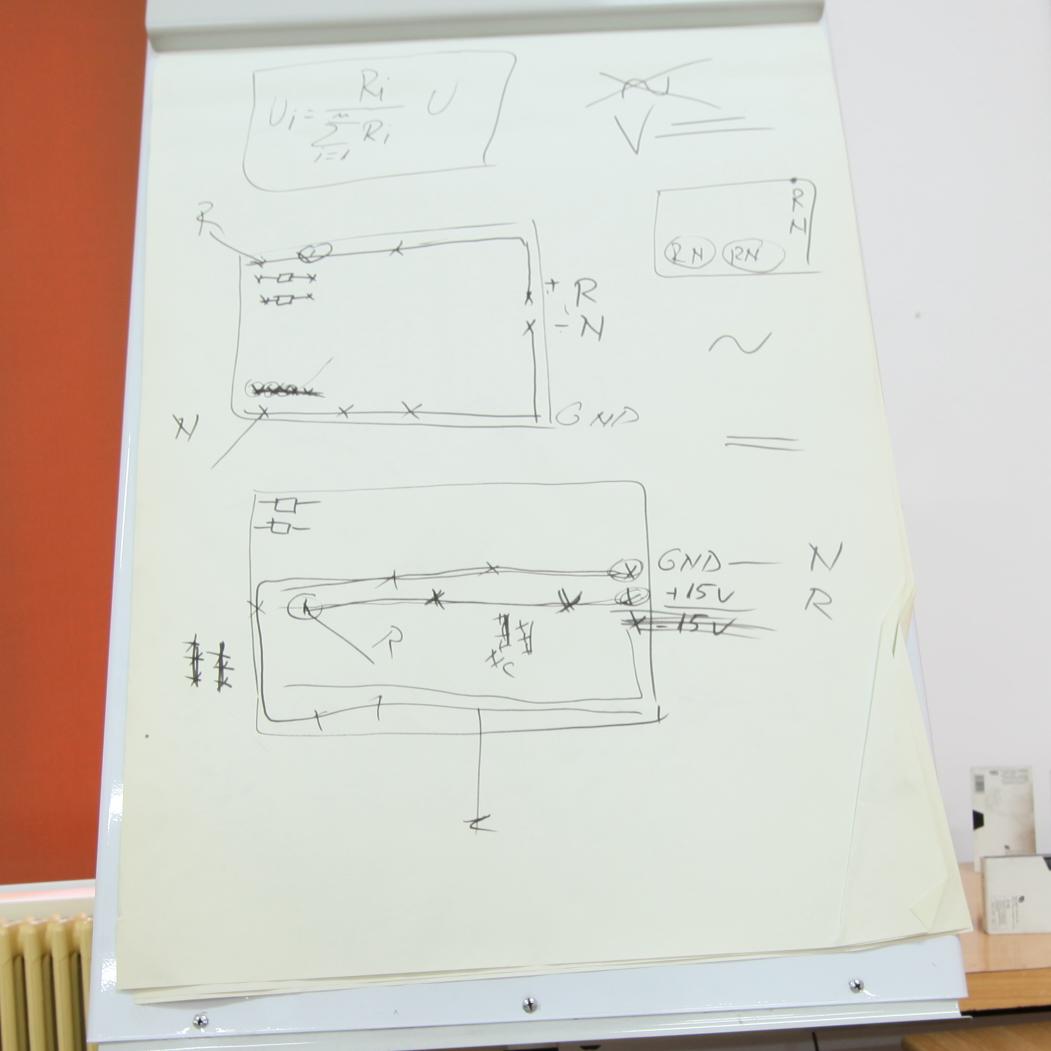 U_i = \frac{R_i}{\sum_{i=1}^{n} R_i} U
R
R
N
RN RN
+ R
- N
N
GND
GND — N
+15V R
-15V
R
C